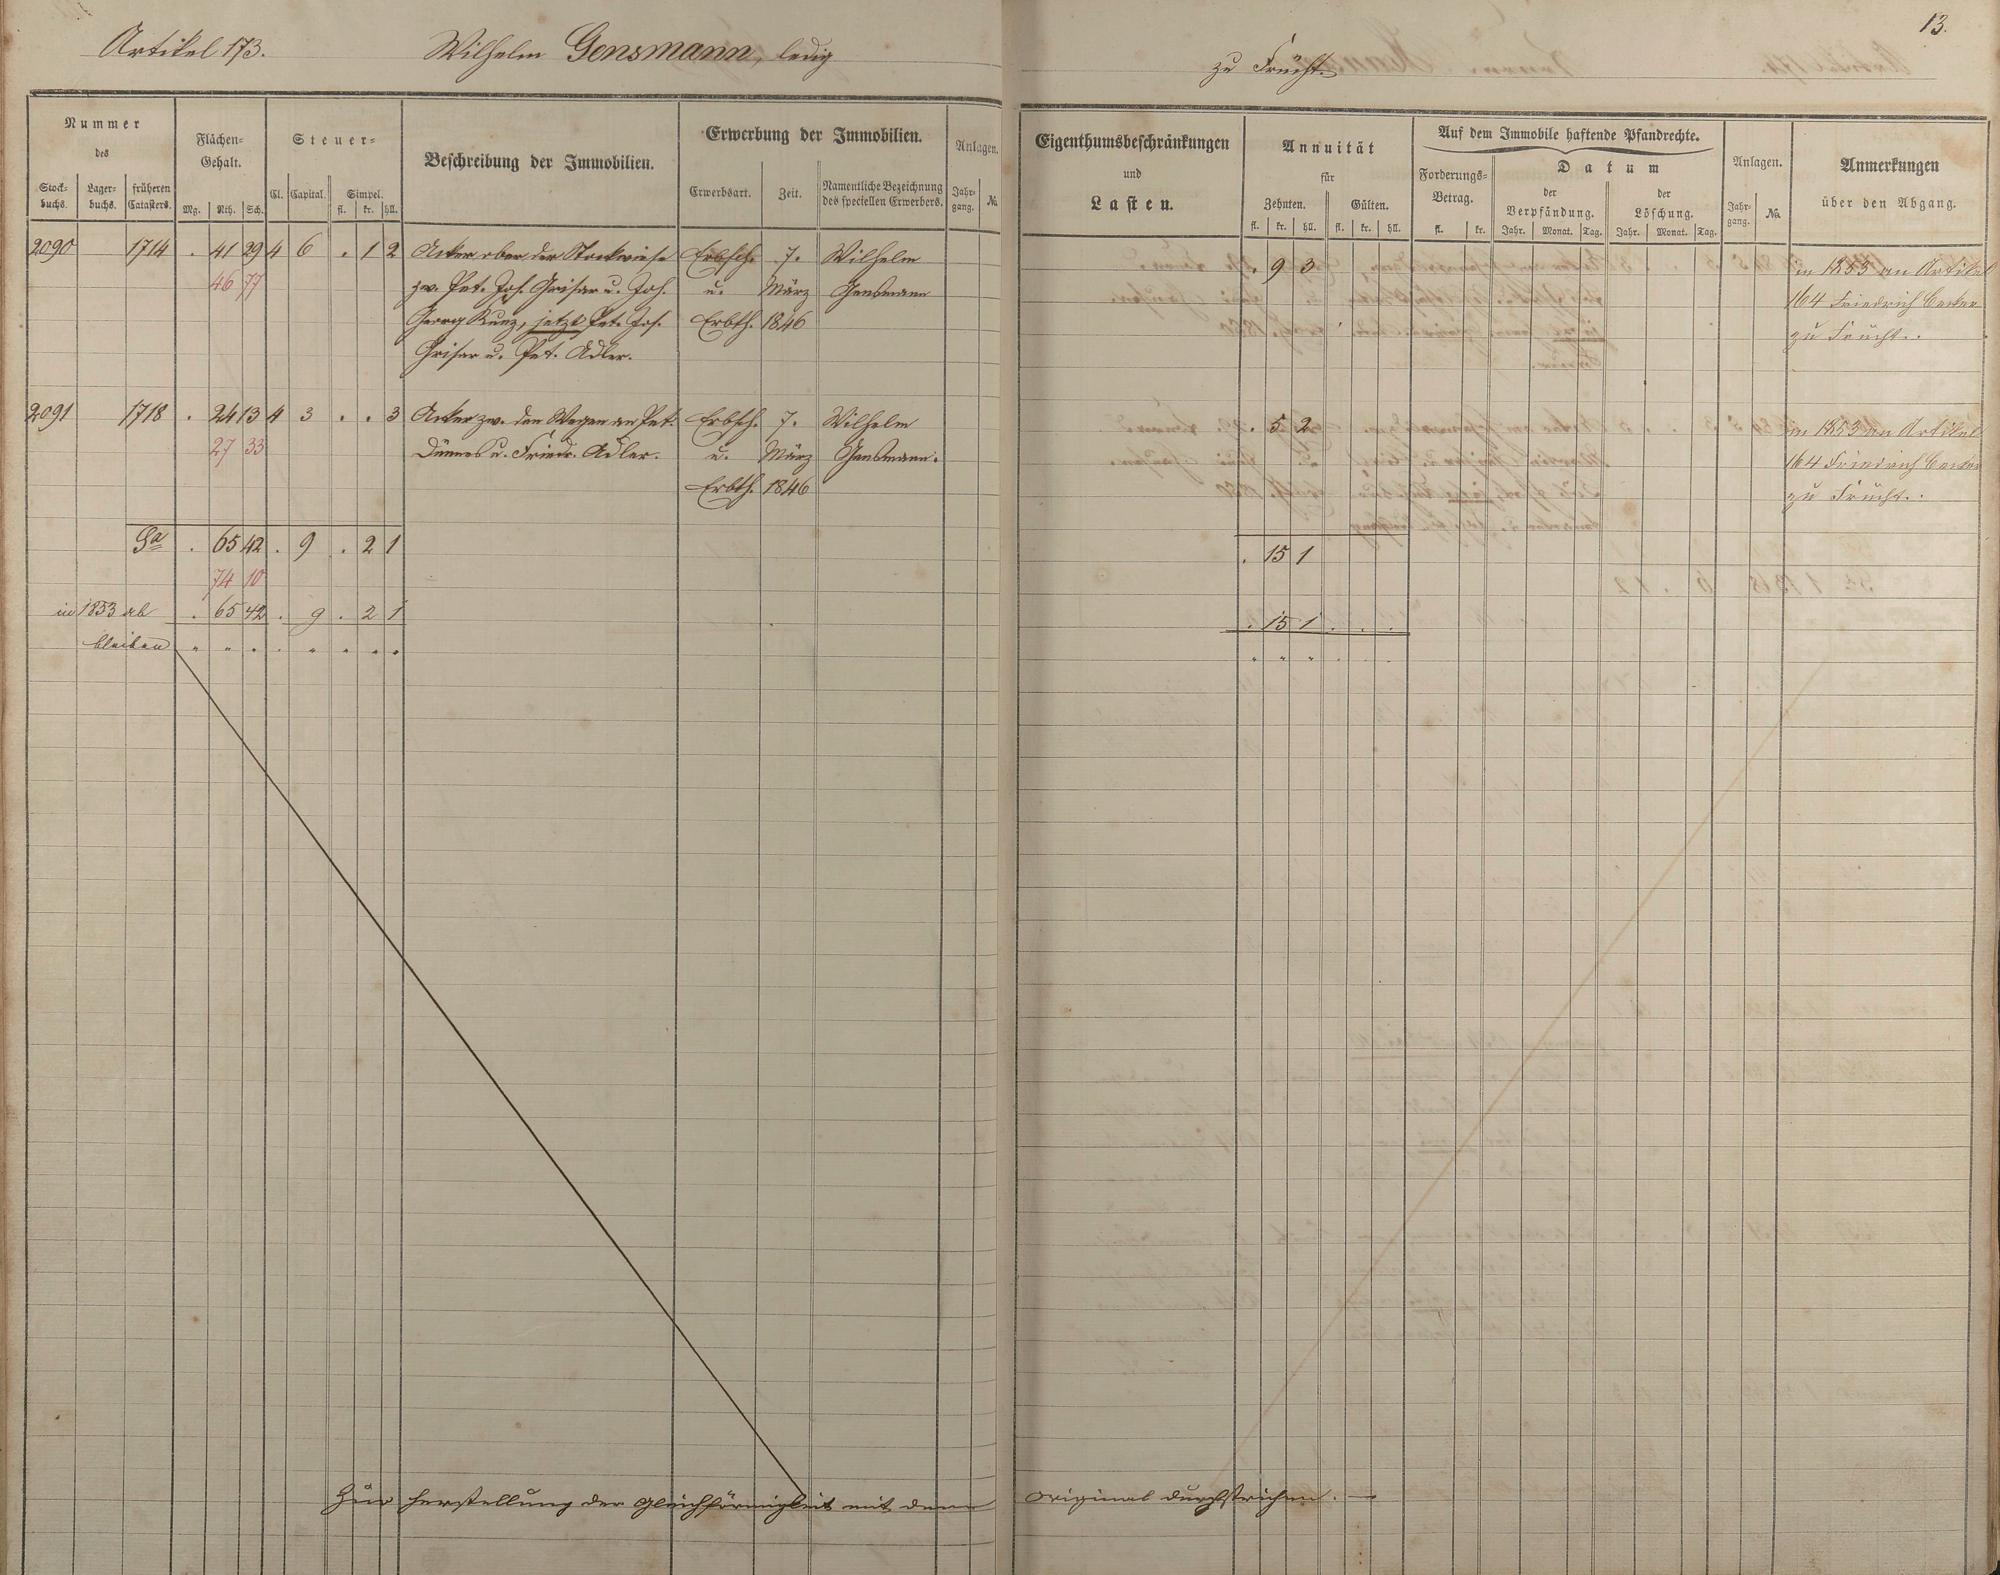 13.
Artikel 173. Wilhelm Gensmann, ledig zu Frücht.
Nummer des
Stock-buchs. Lager-buchs. früheren Catasters.
Flächen-Gehalt.
Mg. Rth. Sch.
Steuer-
Cl. Capital. Simpel.
fl. kr. hll.
Beschreibung der Immobilien.
Erwerbung der Immobilien.
Erwerbsart. Zeit. Namentliche Bezeichnung des speciellen Erwerbers.
Anlagen.
Jahr-gang. No.
Eigenthumsbeschränkungen und Lasten.
Annuität für
Zehnten. Gülten.
fl. kr. hll. fl. kr. hll.
Auf dem Immobile haftende Pfandrechte.
Forderungs-Betrag.
fl. kr.
Datum
der Verpfändung. der Löschung.
Jahr. Monat. Tag. Jahr. Monat. Tag.
Anlagen.
Jahr-gang. No.
Anmerkungen über den Abgang.
2090 1714 . 41 29 4 6 . 1 2 Acker ober der Stockwiese Erbsch. 7. Wilhelm . 9 3 in 1853 an Artikel
46 77 zw. Pet. Jos. Grisar u. Joh. u. März Gensmann 164 Friedrich Becker
Georg Kunz, jetzt Pet. Jos. Erbth. 1846 zu Frücht.
Grisar u. Pet. Adler.
2091 1718 . 24 13 4 3 . . 3 Acker zw. den Wegen an Pet. Erbsch. 7. Wilhelm . 5 2 in 1853 an Artikel
27 33 Dünnes u. Friedr. Adler. u. März Gensmann. 164 Friedrich Becker
Erbth. 1846 zu Frücht.
Sa . 65 42 . 9 . 2 1 . 15 1
74 10
in 1853 ab . 65 42 . 9 . 2 1 . 15 1 . . .
bleiben " " " . " " " " " " " . . .
Zur Herstellung der Gleichförmigkeit mit dem Original durchstrichen. —